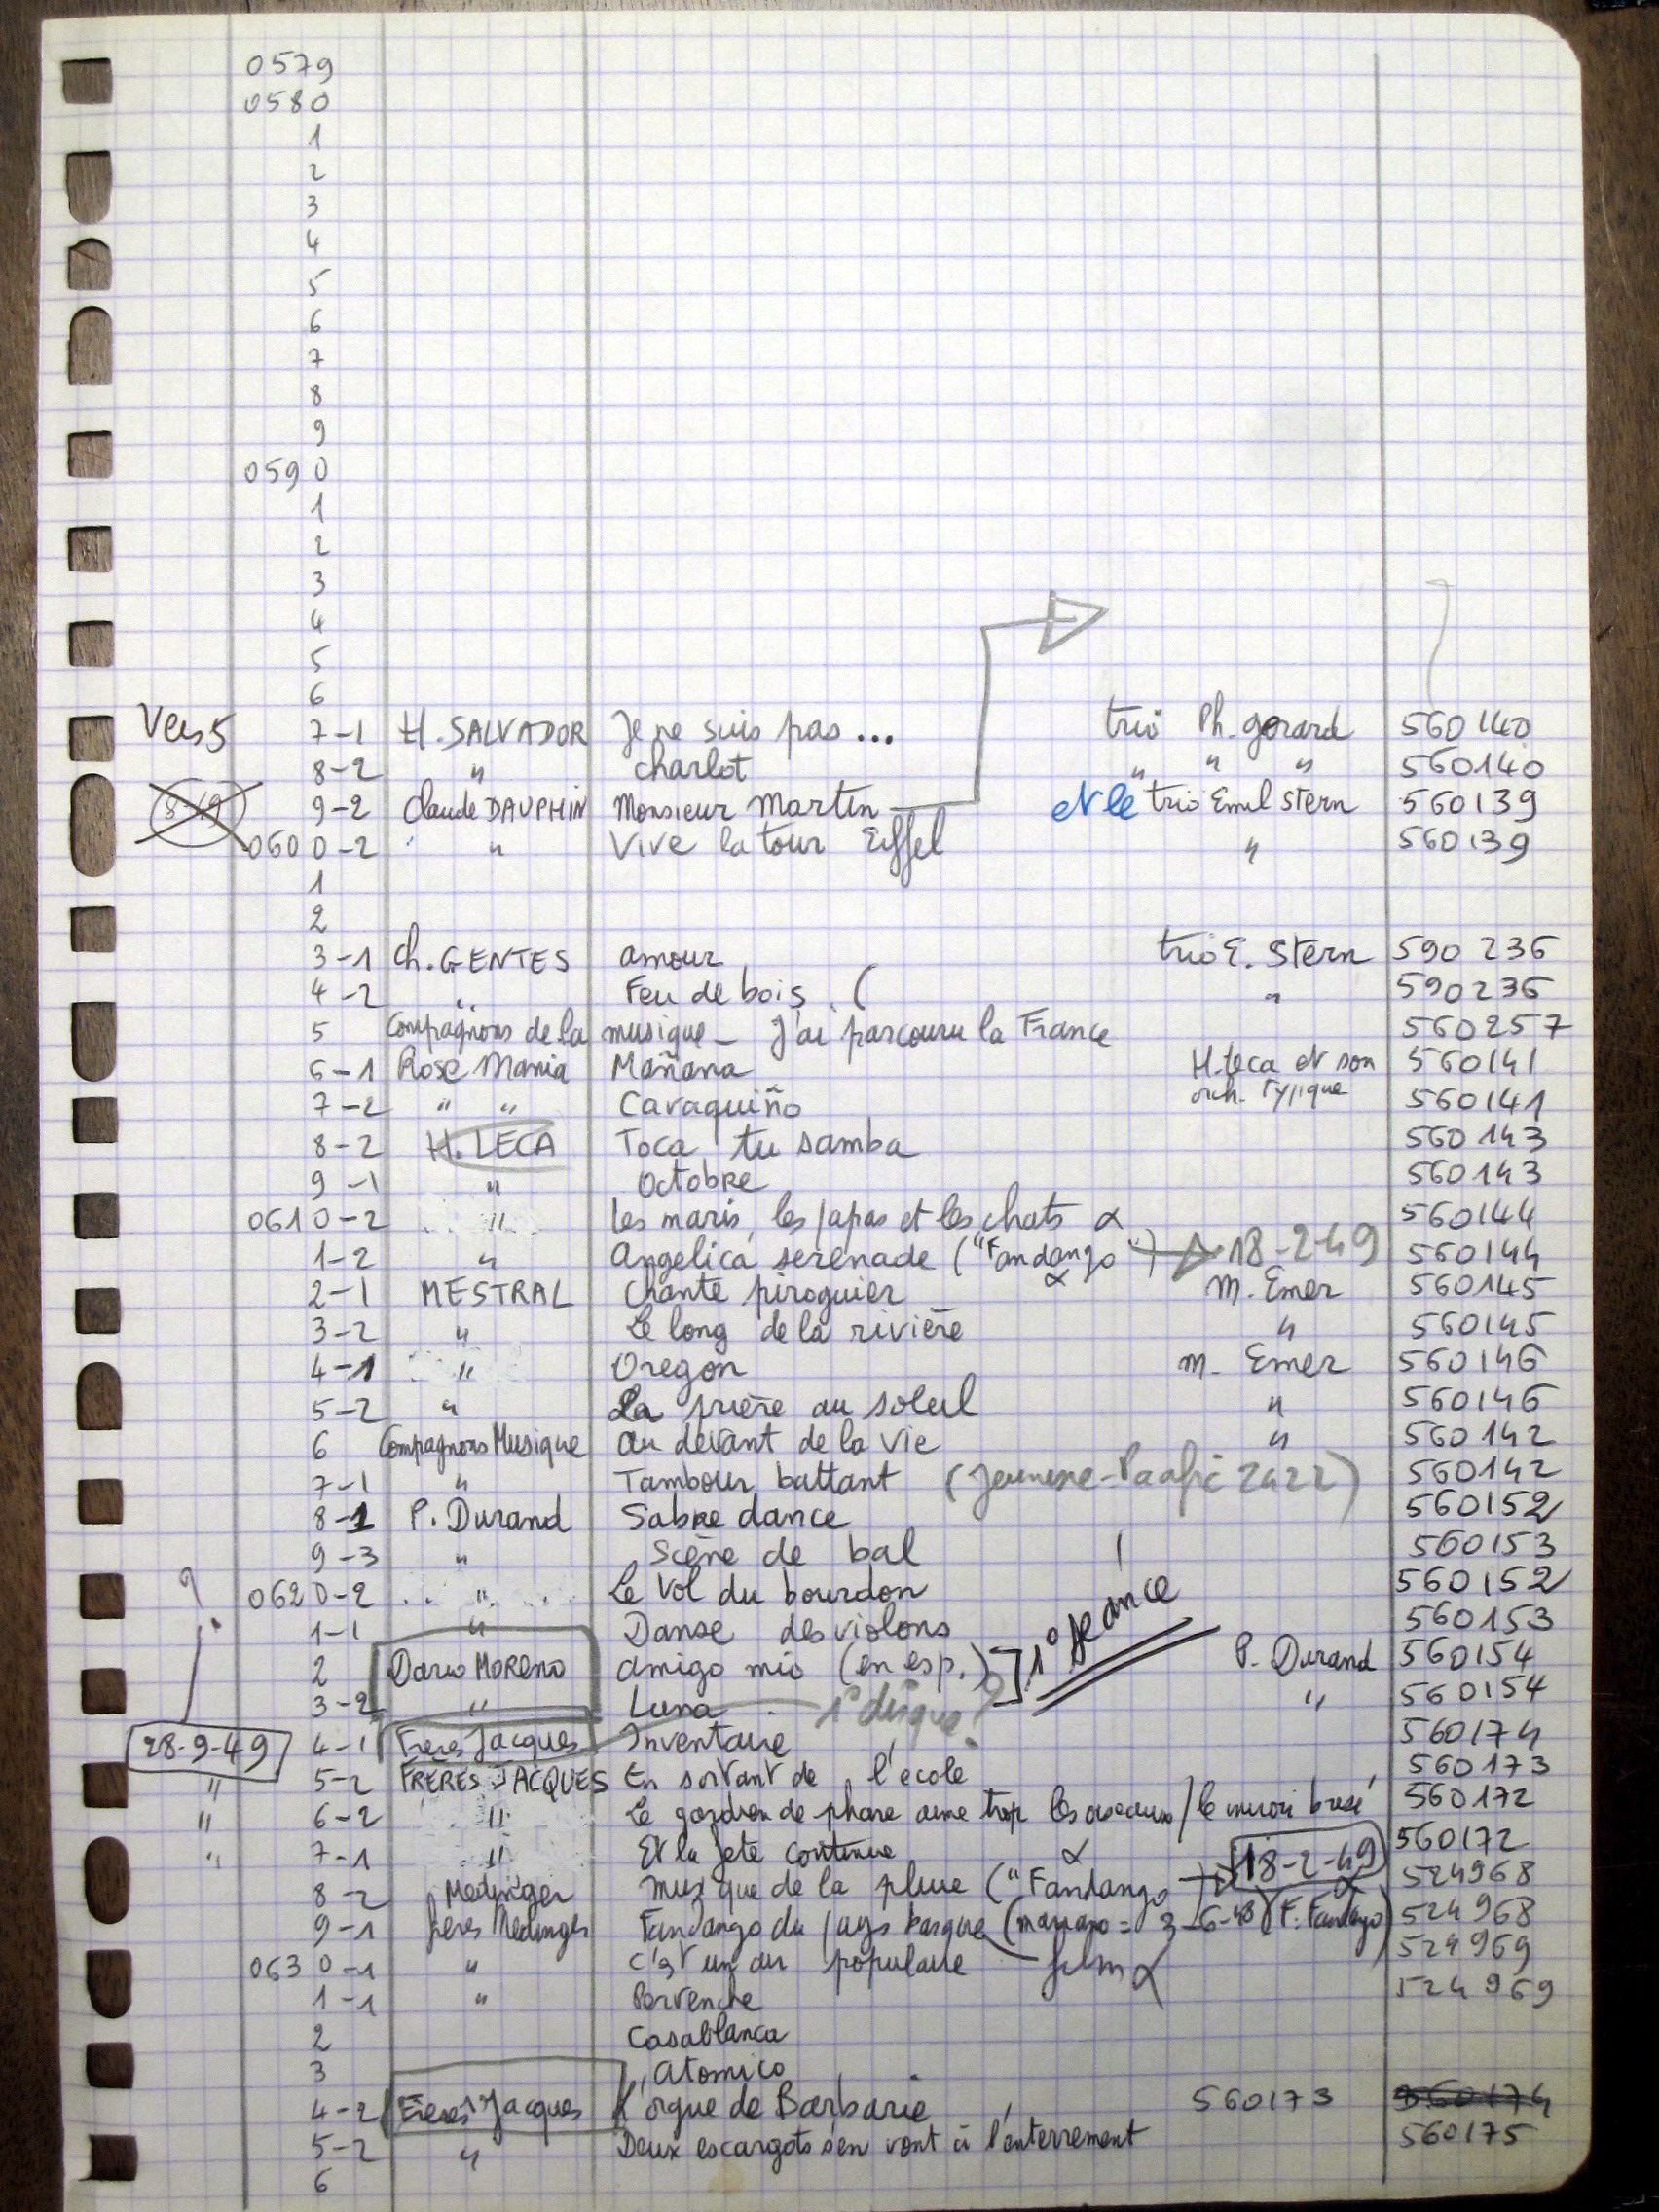 0579
0580
1
2
3
4
5
6
7
8
9
0590
1
2
3
4
5
6
Vers 5 7-1 H. SALVADOR Je ne suis pas ... trio Ph. gerard 560140
8-2 " charlot " " " 560140
8-49 9-2 Claude DAUPHIN Monsieur Martin et le trio Emil Stern 560139
0600-2 " Vive la tour Eiffel " 560139
1
2
3-1 Ch. GENTES amour trio E. Stern 590236
4-2 " Feu de bois ( " 590236
5 Compagnons de la musique - J'ai parcouru la France 560257
6-1 Rose Mania Mañana H. Leca et son 560141
orch. Typique
7-2 " " Cavaquiño 560141
8-2 H. LECA Toca tu samba 560143
9-1 " Octobre 560143
0610-2 " Les maris, les papas et les chats α 560144
1-2 " Angelica serenade ("Fandango") α 18-2-49 560144
2-1 MESTRAL Chante piroguier M. Emer 560145
3-2 " Le long de la rivière " 560145
4-1 " Oregon M. Emer 560146
5-2 " La prière au soleil " 560146
6 Compagnons Musique Au devant de la vie " 560142
7-1 " Tambour battant 2422) 560142
8-1 P. Durand Sabre dance 560152
9-3 " Scène de bal 560153
0620-2 " Le vol du bourdon 560152
1-1 " Danse des violons 560153
2 Dario MORENO Amigo mio (en esp.) ] 1° séance P. Durand 560154
? 3-2 " Luna 1° disque? " 560154
28-9-49 4-1 Frères Jacques Inventaire 560174
" 5-2 FRÈRES JACQUES En sortant de l'école 560173
" 6-2 " Le gardien de phare aime trop les oiseaux / le miroir brisé 560172
" 7-1 " Et la fete continue 560172
8-2 Medinger Musique de la pluie ("Fandango α 18-2-49 524968
9-1 frères Medinger Fandango du pays basque 3-6-48) (F. Fandango) α 524968
0630-1 " C'est un air populaire film α 524969
1-1 " Pervenche 524969
2 Casablanca
3 Atomico
4-2 Frères Jacques L'orgue de Barbarie 560173 560174
5-2 " Deux escargots s'en vont à l'enterrement 560175
6